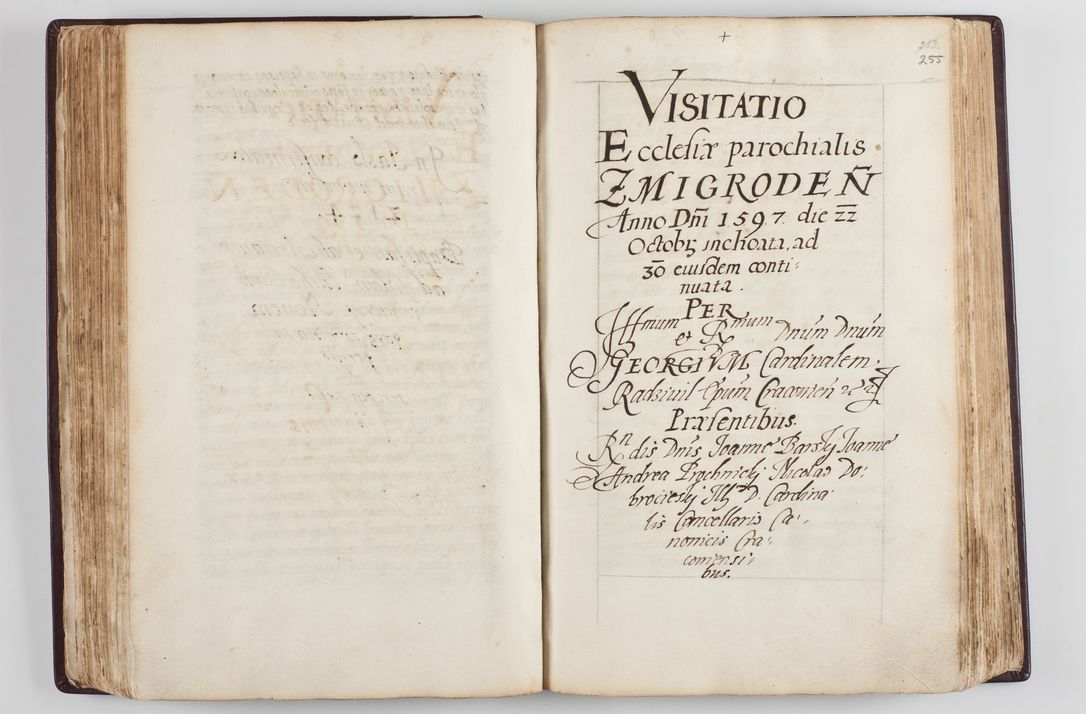 +
253.
255
VISITATIO
Ecclesiæ parochialis
ZMIGRODEÑ
Anno Dñi 1597. die zz
Octobꝫ inchoata, ad
30 eiusdem conti-
nuata.
PER
Illmum et Rmum Dnum Dnum
GEORGIVM Cardinalem
Radziuil Epum Cracouien
Præsentibus.
Rndis Dnis Joanne Barskj Joanne
Andrea Prochnickj Nicolao Do-
brocieskj Illi D. Cardina-
lis Cancellario Ca-
nonicis Cra-
couiensi-
bus.